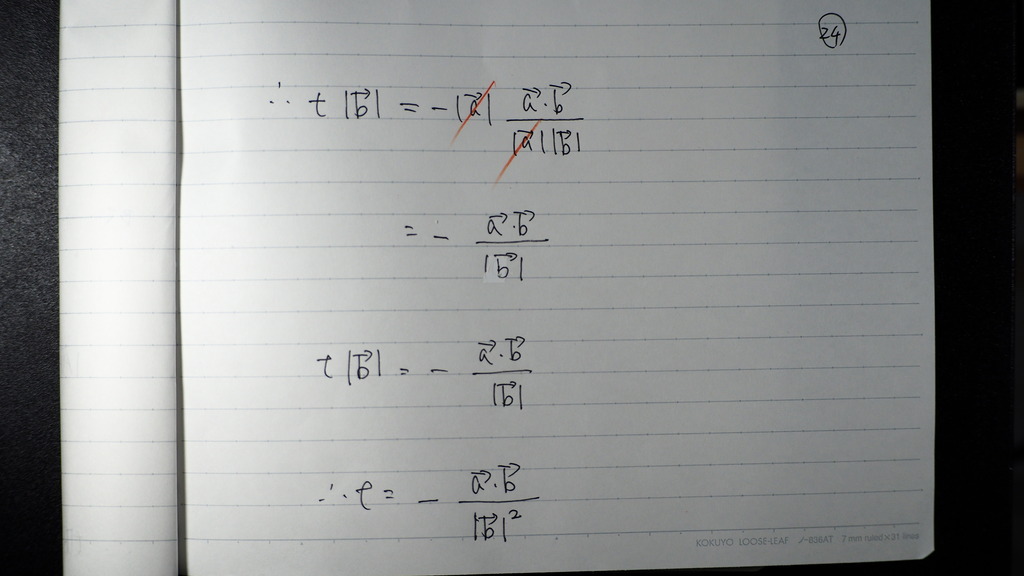 24
∴ t |b⃗| = -|a⃗| (a⃗·b⃗)/(|a⃗||b⃗|)
= - (a⃗·b⃗)/|b⃗|
t |b⃗| = - (a⃗·b⃗)/|b⃗|
∴ t = - (a⃗·b⃗)/|b⃗|²
KOKUYO LOOSE-LEAF ノ-836AT 7 mm ruled×31 lines